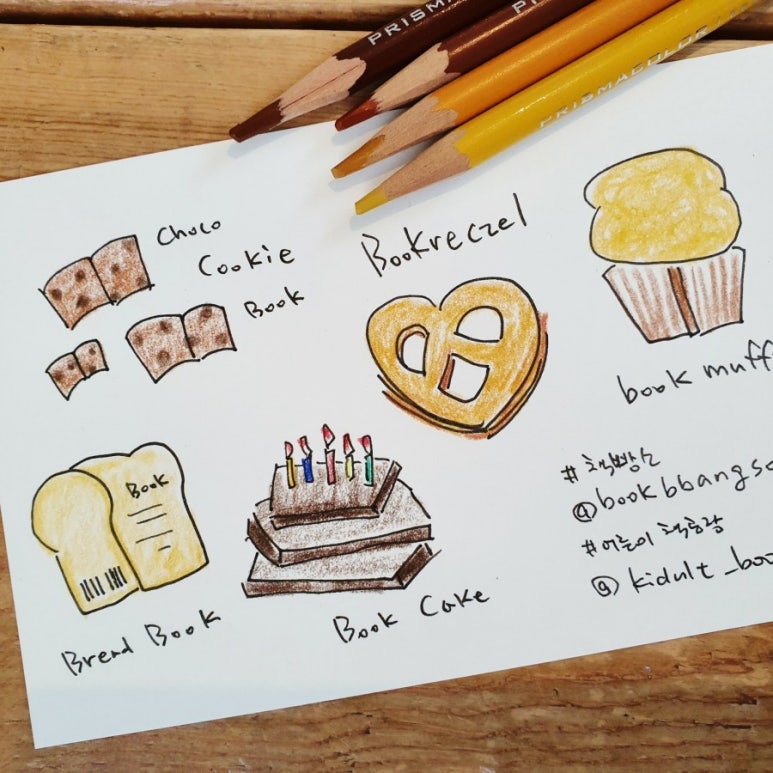 PRISMA
PRISMACOLOR
Choco
Cookie
Book
Bookreczel
book muff
Book
Bread Book
Book Cake
#책빵소
@bookbbangso
#어른이책공장
@kidult_boo